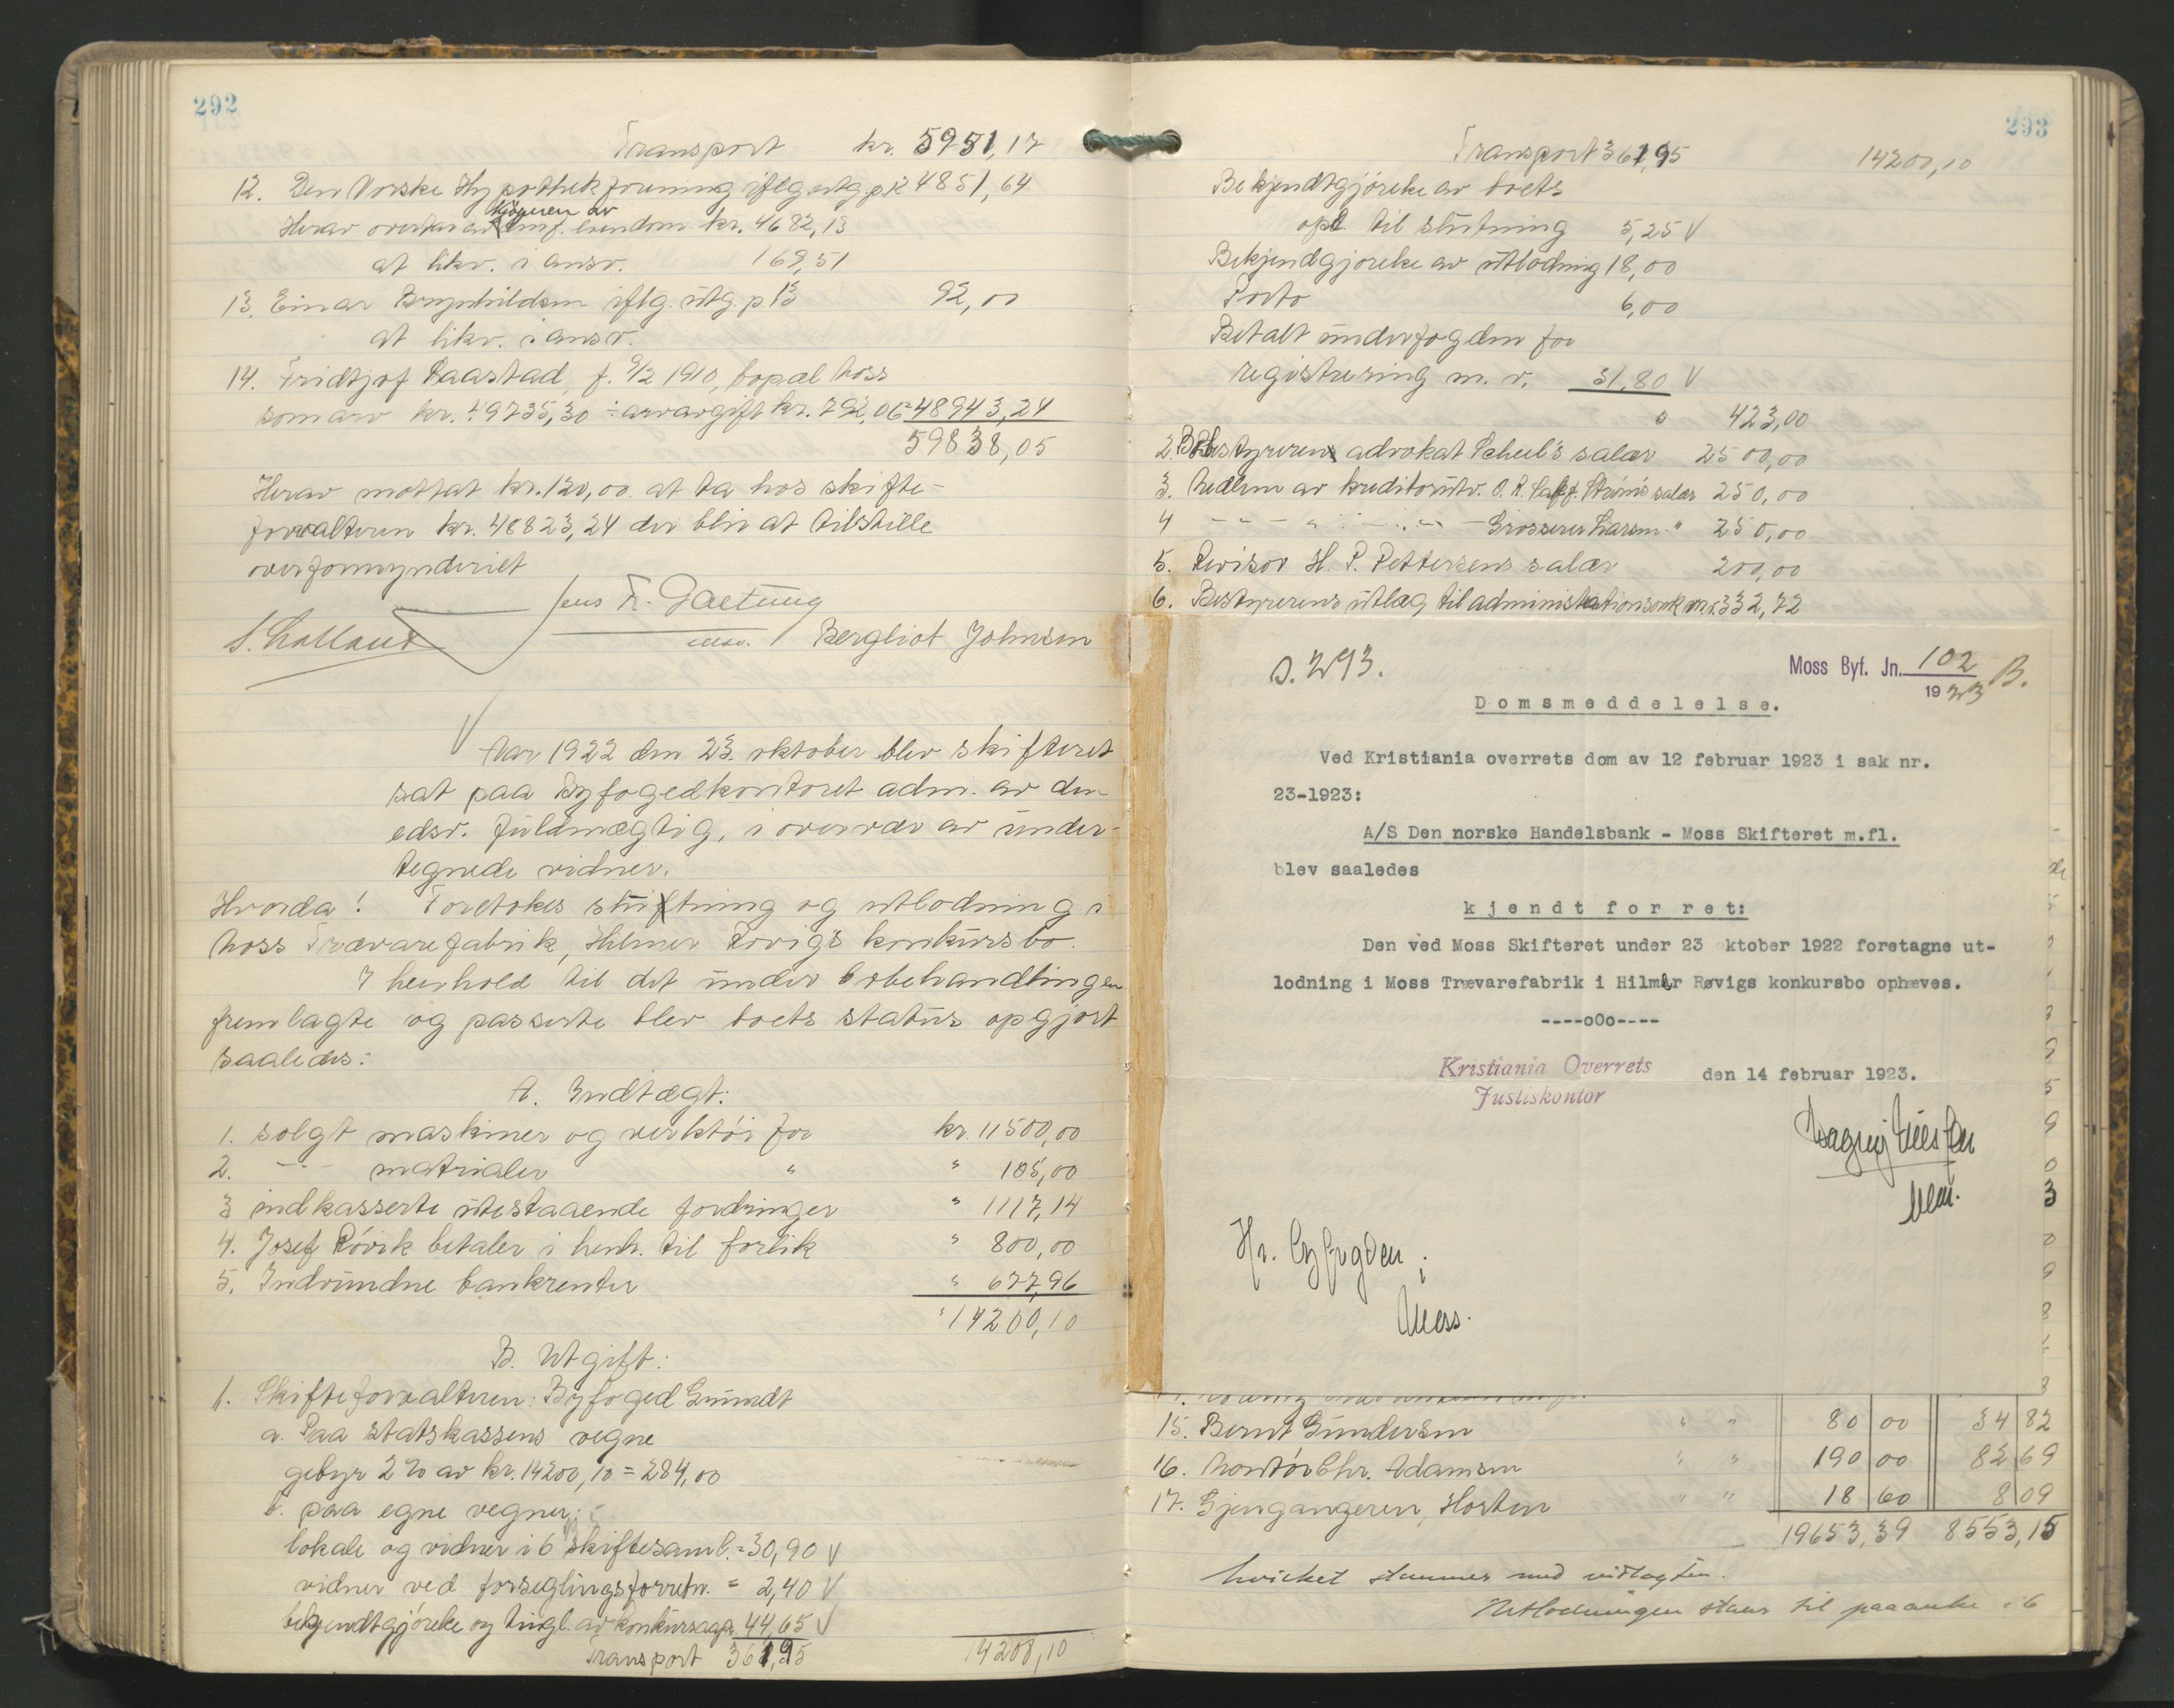 292
Transport kr. 5951,17
12. Den Norske Hypothekforening iflg. utg. p. 12 4851,64
kjøperen av
Herav overtar av eiendom kr. 4682,13
at likv. i ansv. 169,51
13. Einar Brynhildsen iflg. utg. p 13 92,00
at likv. i ansv.
14. Fridtjof Raastad, f. 9/2 1910, bopæl Moss
som arv kr. 49735,30 ÷ arvavgift kr. 792,06 = 48943,24
59838,05
Herav mottat kr. 120,00. at ta hos skifte-
forvalteren kr. 48823,24 der blir at tilstille
overformynderiet
Jens Fr.
Bergliot Johnsen
Aar 1922 den 23. oktober blev skifteret
sat paa Byfogedkontoret adm. av den
edsv. fuldmægtig, i overvær av under-
tegnede vidner.
Hvorda! Foretokes slutning og utlodning i
Moss Trævarefabrik, Hilmer Røvig's konkursbo.
I henhold til det under bobehandlingen
fremlagte og passerte blev boets status opgjort
saaledes:
A. Indtægt:
1. solgt maskiner og verktøi for kr. 11500,00
2. -"- matrialer " " 105,00
3 indkasserte utestaaende fordringer " 1117,14
4. Josef Røvik betaler i henh. til forlik " 800,00
5. Indvundne bankrenter " 677,96
" 14200,10
B. Utgift:
1. Skifteforvalteren: Byfoged Gründt
a. Paa statskassens vegne
gebyr 2% av kr. 14200,10 = 284,00
b. paa egne vegner:
lokale og vidner i 6 skiftesamb. = 30,90 V
vidner ved forseglingsforretn. = 2,40 V
bekjendtgjørelse og tingl. av konkursaapn. 44,65 V
Transport 361,95 14200,10
293
Transport 361,95 14200,10
Bekjendtgjørelse av boets
opl. til slutning 5,25 V
Bekjendgjørelse av utlodning 18,00
Porto 6,00
Betalt underfogden for
registrering m. v. 31,80 V
" 423,00
2. Bobestyreren advokat Scheel's salær 2500,00
3. Medlem av kreditorutv. O. R. salær 250,00
4 -"- -"- Grosserer Larsen " 250,00
5. Revisor H. P. Pettersens salær 200,00
6. Bestyrerens utlæg til administrationsomk. m.v. 332,72
s. 293.
Moss Byf. Jn. 102 B.
1923
Domsmeddelelse.
Ved Kristiania overrets dom av 12 februar 1923 i sak nr.
23-1923:
A/S Den norske Handelsbank - Moss Skifteret m.fl.
blev saaledes
kjendt for ret:
Den ved Moss Skifteret under 23 ktober 1922 foretagne ut-
lodning i Moss Trævarefabrik i Hilmar Røvigs konkursbo ophæves.
----oOo----
Kristiania Overrets
Justiskontor
den 14 februar 1923.
Hr. Byfogden i
Moss.
15. Bernt Gundersen " " 80 00 34 82
16. Montør Chr. Adamsen " " 190 00 82 69
17. Gjengangeren, Horten " " 18 60 8 09
19653,39 8553,15
hvilket stemmer med vidlagten.
Utlodningen staar til paaanke i 6